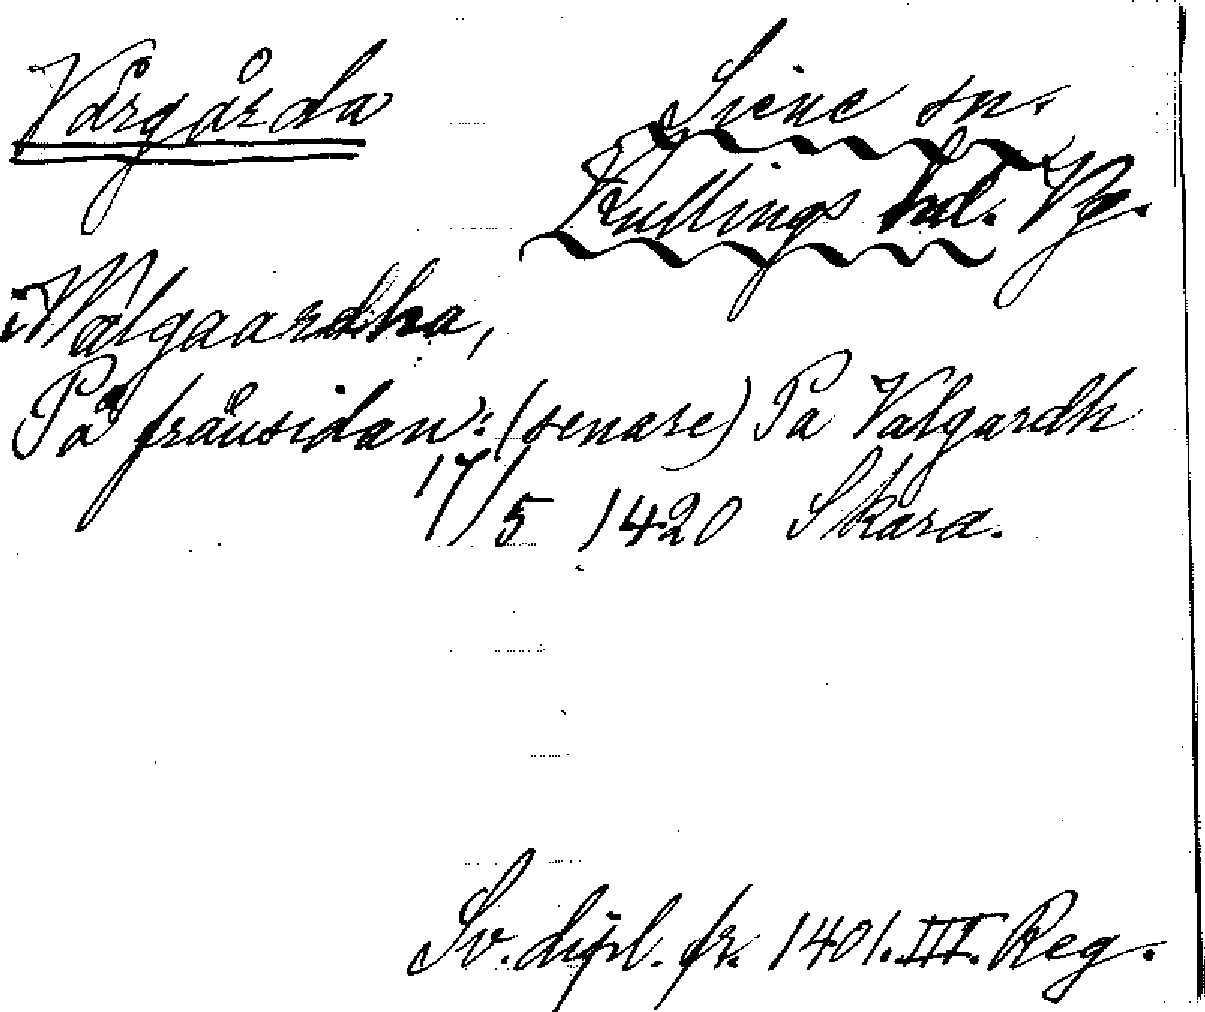 Vårgårda
Siene sn.
Kullings hd. Vg.
i Walgaardha,
På frånsidan: (senare) Pa Valgardh
17/5 1420 Skara.
Sv. dipl. fr. 1401. III. Reg.